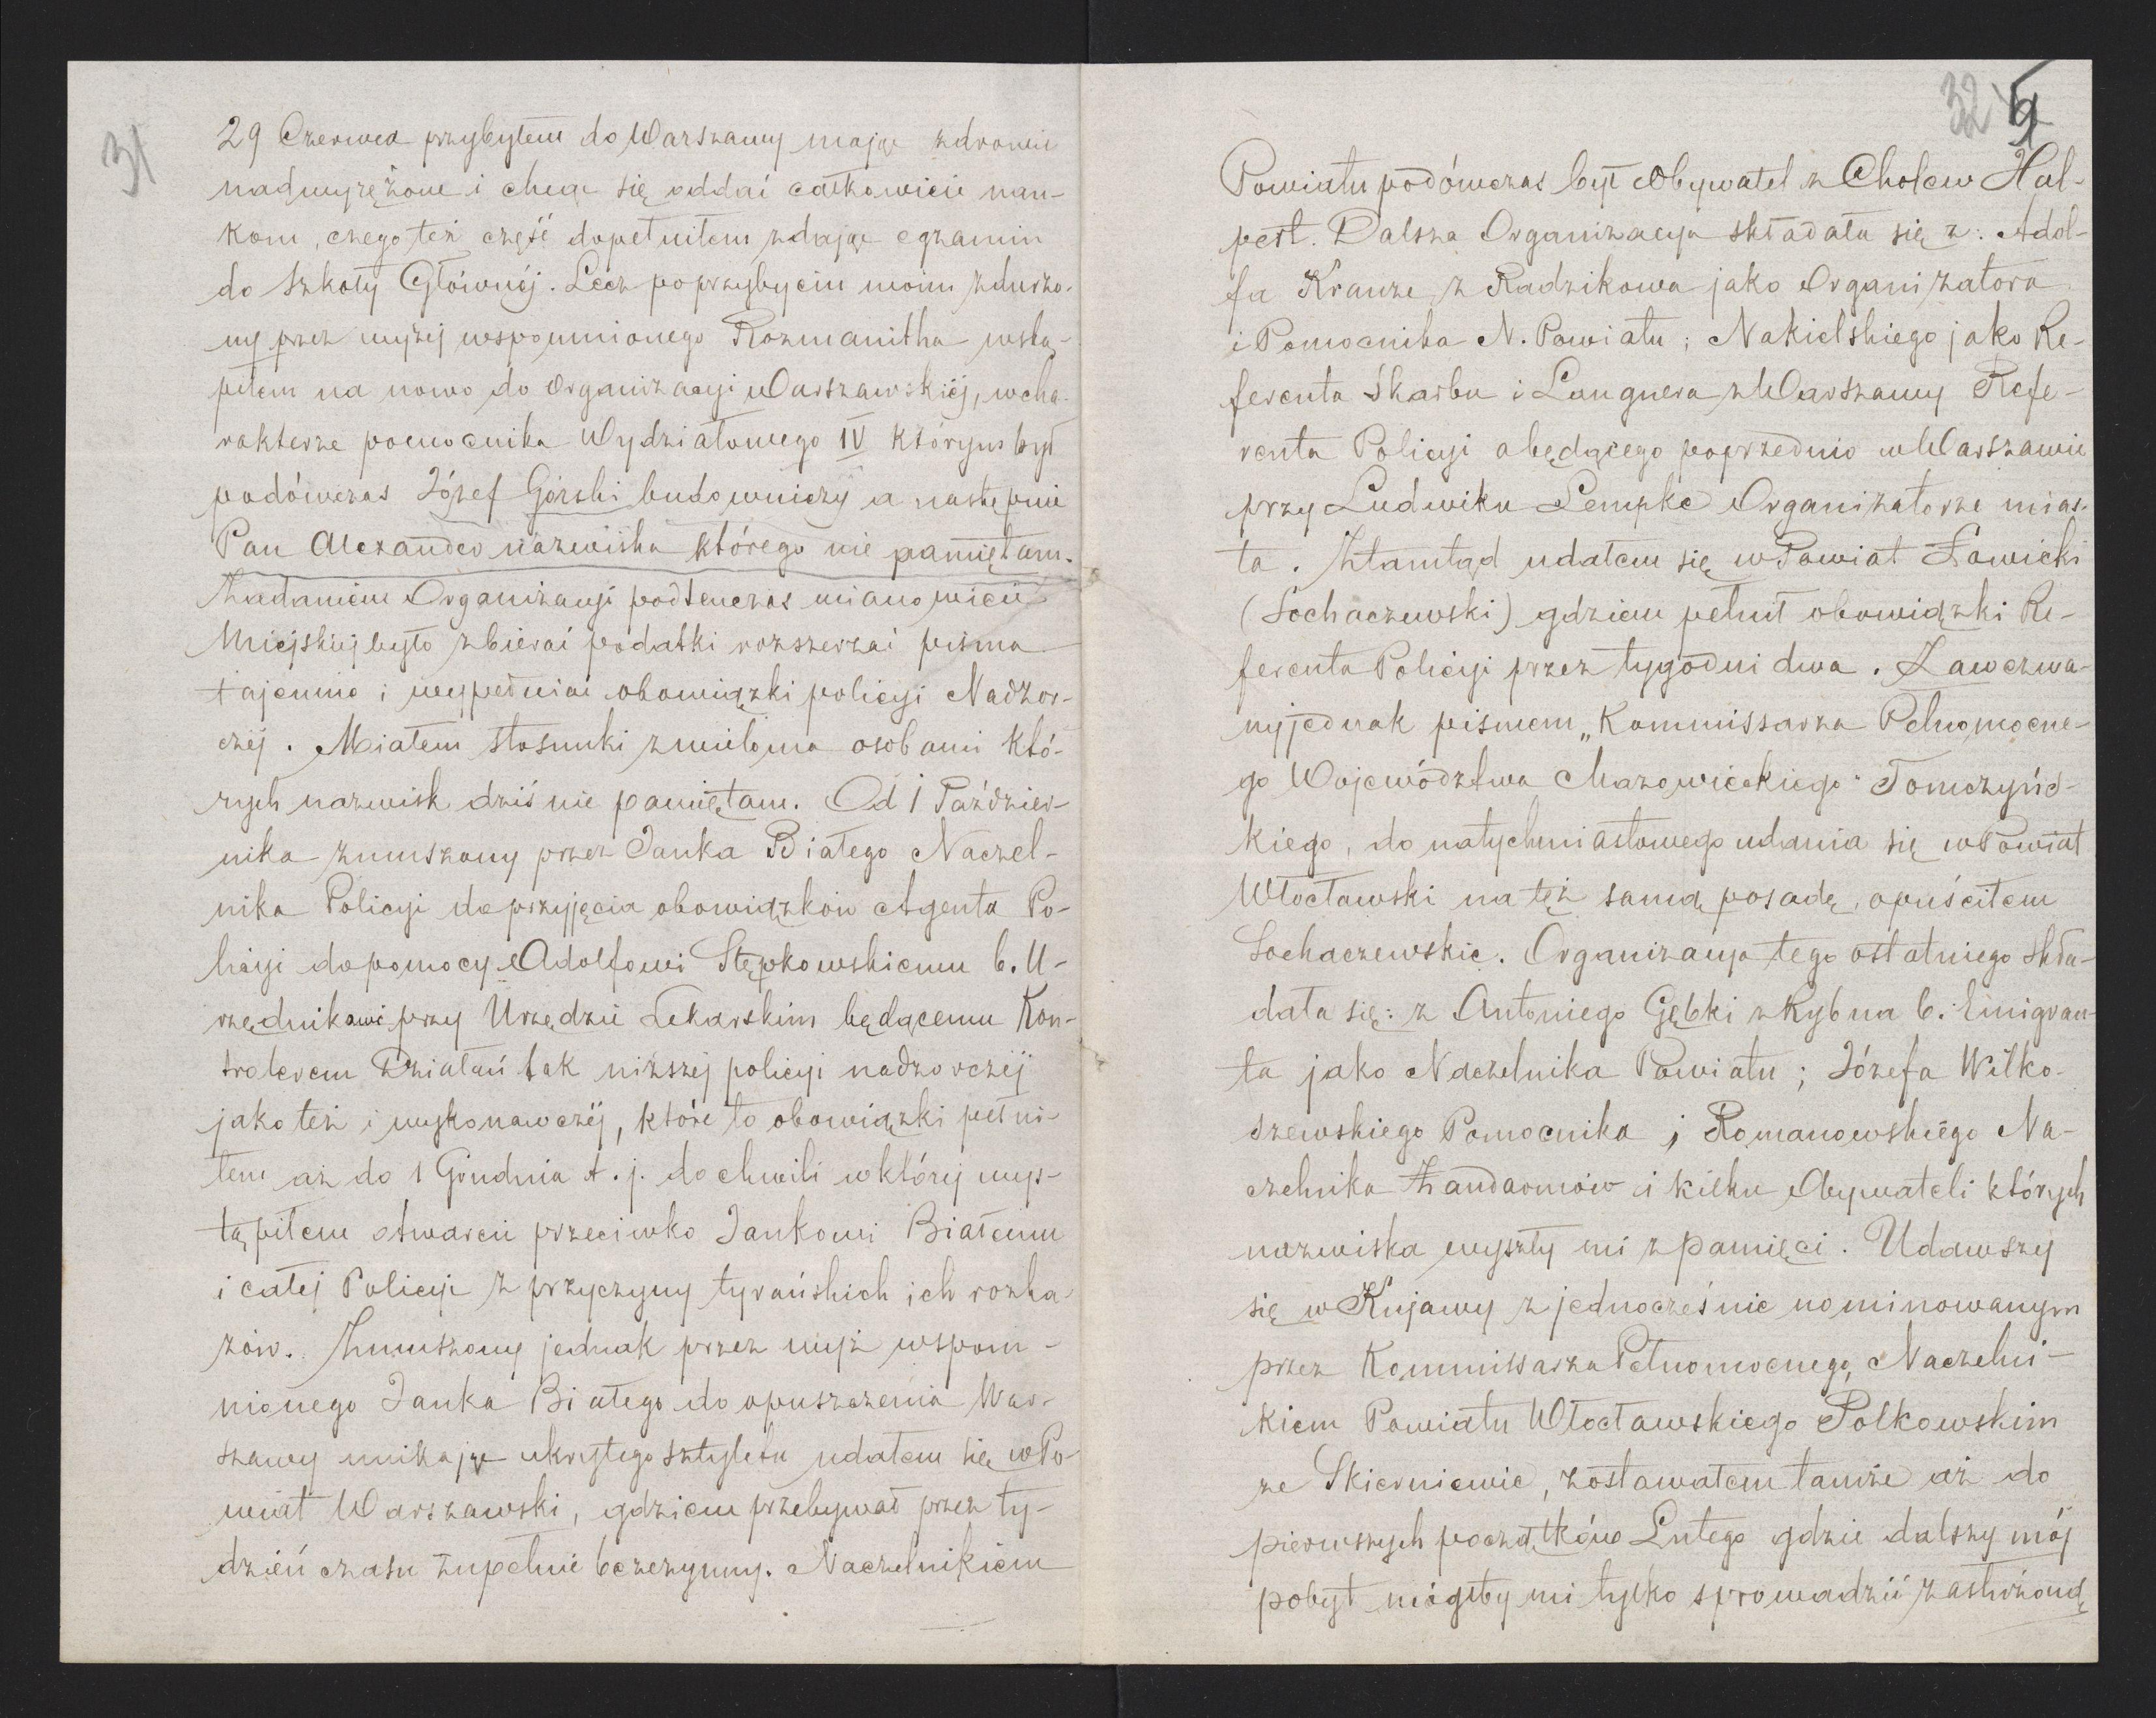 31
29 Czerwca przybyłem do Warszawy mając zdrowie
nadwyrężone i chcąc się oddać całkowicie nau-
kom, czego też część dopełniłem zdając egzamin
do Szkoły Głównéj. Lecz po przybyciu moim zdurzo-
ny przez wyżej wspomnionego Rozmanitha wstą-
piłem na nowo do Organizacyi Warszawskiéj, w cha-
rakterze pomocnika Wydziałowego IV którym był
podówczas Józef Górski budowniczy a następnie
Pan Alexander nazwiska którego nie pamiętam.
Zadaniem Organizacyi podtenczas mianowicie
Miejskiej było zbierać podatki rozszerzać pisma
tajemne i wypełniać obowiązki policyi Nadzor-
czéj. Miałem stosunki z wieloma osobami któ-
rych nazwisk dziś nie pamiętam. Od 1 Paździer-
nika zmuszony przez Janka Białego Naczel-
nika Policyi do przyjęcia obowiązków Agenta Po-
licyi do pomocy Adolfowi Stępkowskiemu b. U-
rzędnikowi przy Urzędzie Lekarskim będącemu Kon-
trolerem Działań tak niższéj policyi nadzorczéj
jako też i wykonawczéj, które to obowiązki pełni-
łem aż do 1 Grudnia t. j. do chwili w któréj wys-
tąpiłem otwarcie przeciwko Jankowi Białemu
i całéj Policyi z przyczyny tyrańskich ich rozka-
zów. Zmuszony jednak przez wyż wspom-
nionego Janka Białego do opuszczenia War-
szawy unikając ukrytego sztyletu udałem się w Po-
wiat Warszawski, gdziem przebywał przez ty-
dzień czasu zupełnie bezczynny. Naczelnikiem
32 9
Powiatu podówczas był Obywatel z Cholew Hal-
pert. Dalsza Organizacya składała się z: Adol-
fa Krauze z Radzikowa jako Organizatora
i Pomocnika N. Powiatu; Nakielskiego jako Re-
ferenta Skarbu i Langnera z Warszawy Refe-
renta Policyi a będącego poprzednio w Warszawie
przy Ludwiku Lempke Organizatorze mias-
ta. Ztamtąd udałem się w Powiat Łowicki
(Sochaczewski) gdziem pełnił obowiązki Re-
ferenta Policyi przez tygodni dwa. Zawezwa-
ny jednak pismem „Kommissarza Pełnomocne-
go Województwa Mazowieckiego" Tomczyńs-
kiego, do natychmiastowego udania się w Powiat
Włocławski na téż samą posadę, opuściłem
Sochaczewskie. Organizacya tego ostatniego skła-
dała się: z Antoniego Gębki z Rybna b. Emigran-
ta jako Naczelnika Powiatu; Józefa Wilko-
szewskiego Pomocnika; Romanowskiego Na-
czelnika Żandarmów i kilku Obywateli których
nazwiska wyszły mi z pamięci. Udawszy
się w Kujawy z jednocześnie nominowanym
przez Kommissarza Pełnomocnego, Naczelni-
kiem Powiatu Włocławskiego Polkowskim
ze Skierniewic, zostawałem tamże aż do
pierwszych początków Lutego gdzie dalszy mój
pobyt mógłby mi tylko sprowadzić zasłużoną